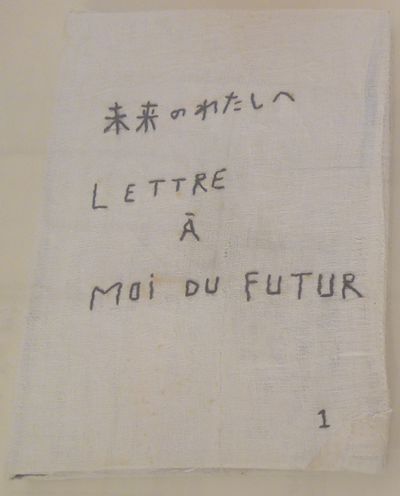 未来のわたしへ
LETTRE
À
MOi DU FUTUR
1